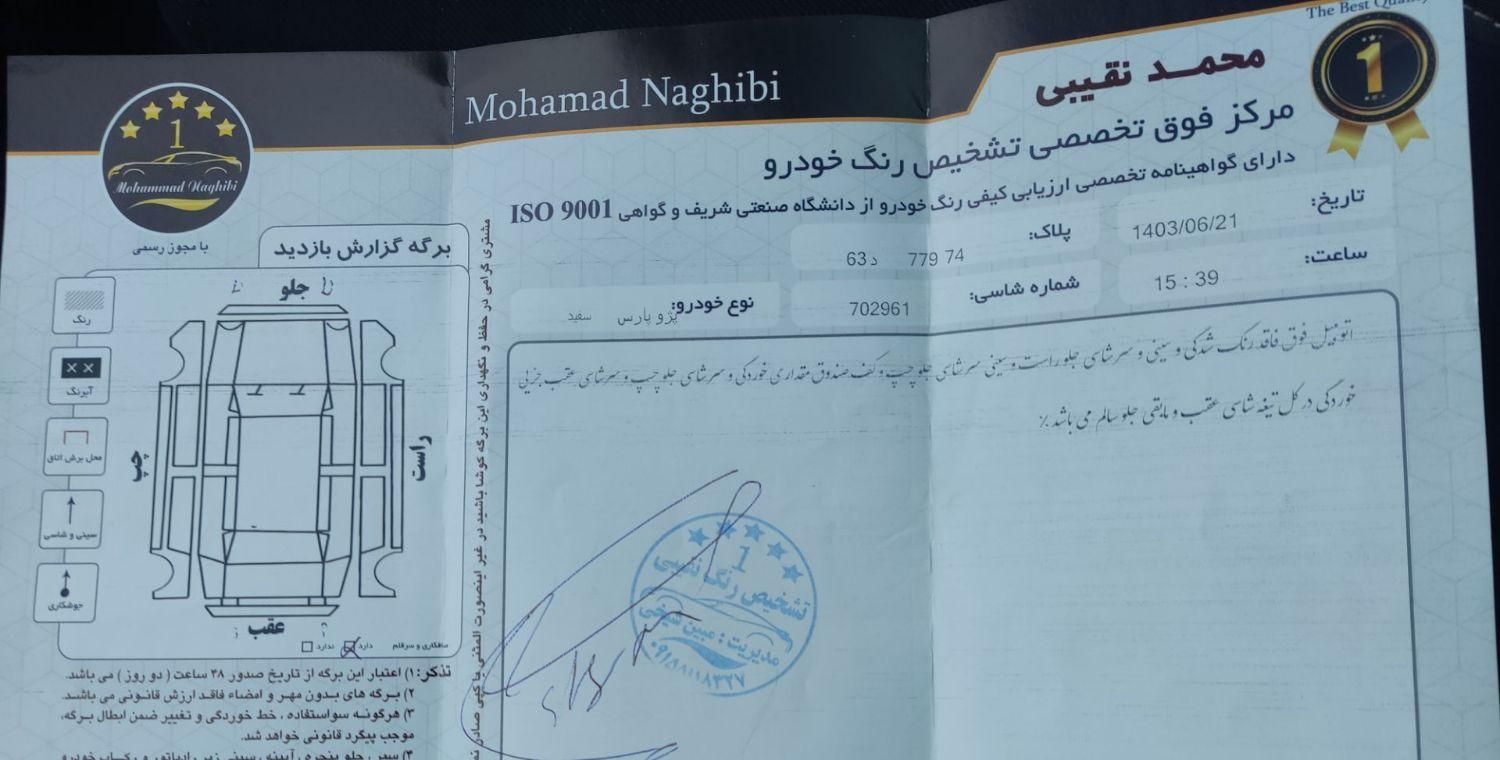 The Best Quality
1
محمد نقیبی
Mohamad Naghibi
مرکز فوق تخصصی تشخیص رنگ خودرو
دارای گواهینامه تخصصی ارزیابی کیفی رنگ خودرو از دانشگاه صنعتی شریف و گواهی ISO 9001
تاریخ: 1403/06/21
پلاک: 74 779 د 63
ساعت: 15 : 39
شماره شاسی: 702961
نوع خودرو: پژو پارس سفید
اتومبیل فوق فاقد رنگ شدگی و سینی و سرشاسی جلو راست و سینی سرشاسی جلو چپ و کف صندوق مقداری خوردگی و سرشاسی جلو چپ و سرشاسی عقب جزئی
خوردگی در کل تیغه شاسی عقب و مابقی جلو سالم می باشد٪
1
تشخیص رنگ نقیبی
مدیریت: مبین شیخی
مشتری گرامی در حفظ و نگهداری این برگه کوشا باشید در غیر اینصورت المثنی یا کپی صادر
1
Mohammad Naghibi
با مجوز رسمی
برگه گزارش بازدید
جلو
رنگ
آبرنگ
محل برش اتاق
سینی و شاسی
جوشکاری
چپ
راست
عقب
صافکاری و سرقلم دارد ندارد
تذکر: ۱) اعتبار این برگه از تاریخ صدور ۴۸ ساعت ( دو روز ) می باشد.
۲) برگه های بدون مهر و امضاء فاقد ارزش قانونی می باشد.
۳) هرگونه سواستفاده ، خط خوردگی و تغییر ضمن ابطال برگه،
موجب پیگرد قانونی خواهد شد.
۴) سپر، جلو پنجره، آیینه، سینی زیر رادیاتور و رکاب خودرو